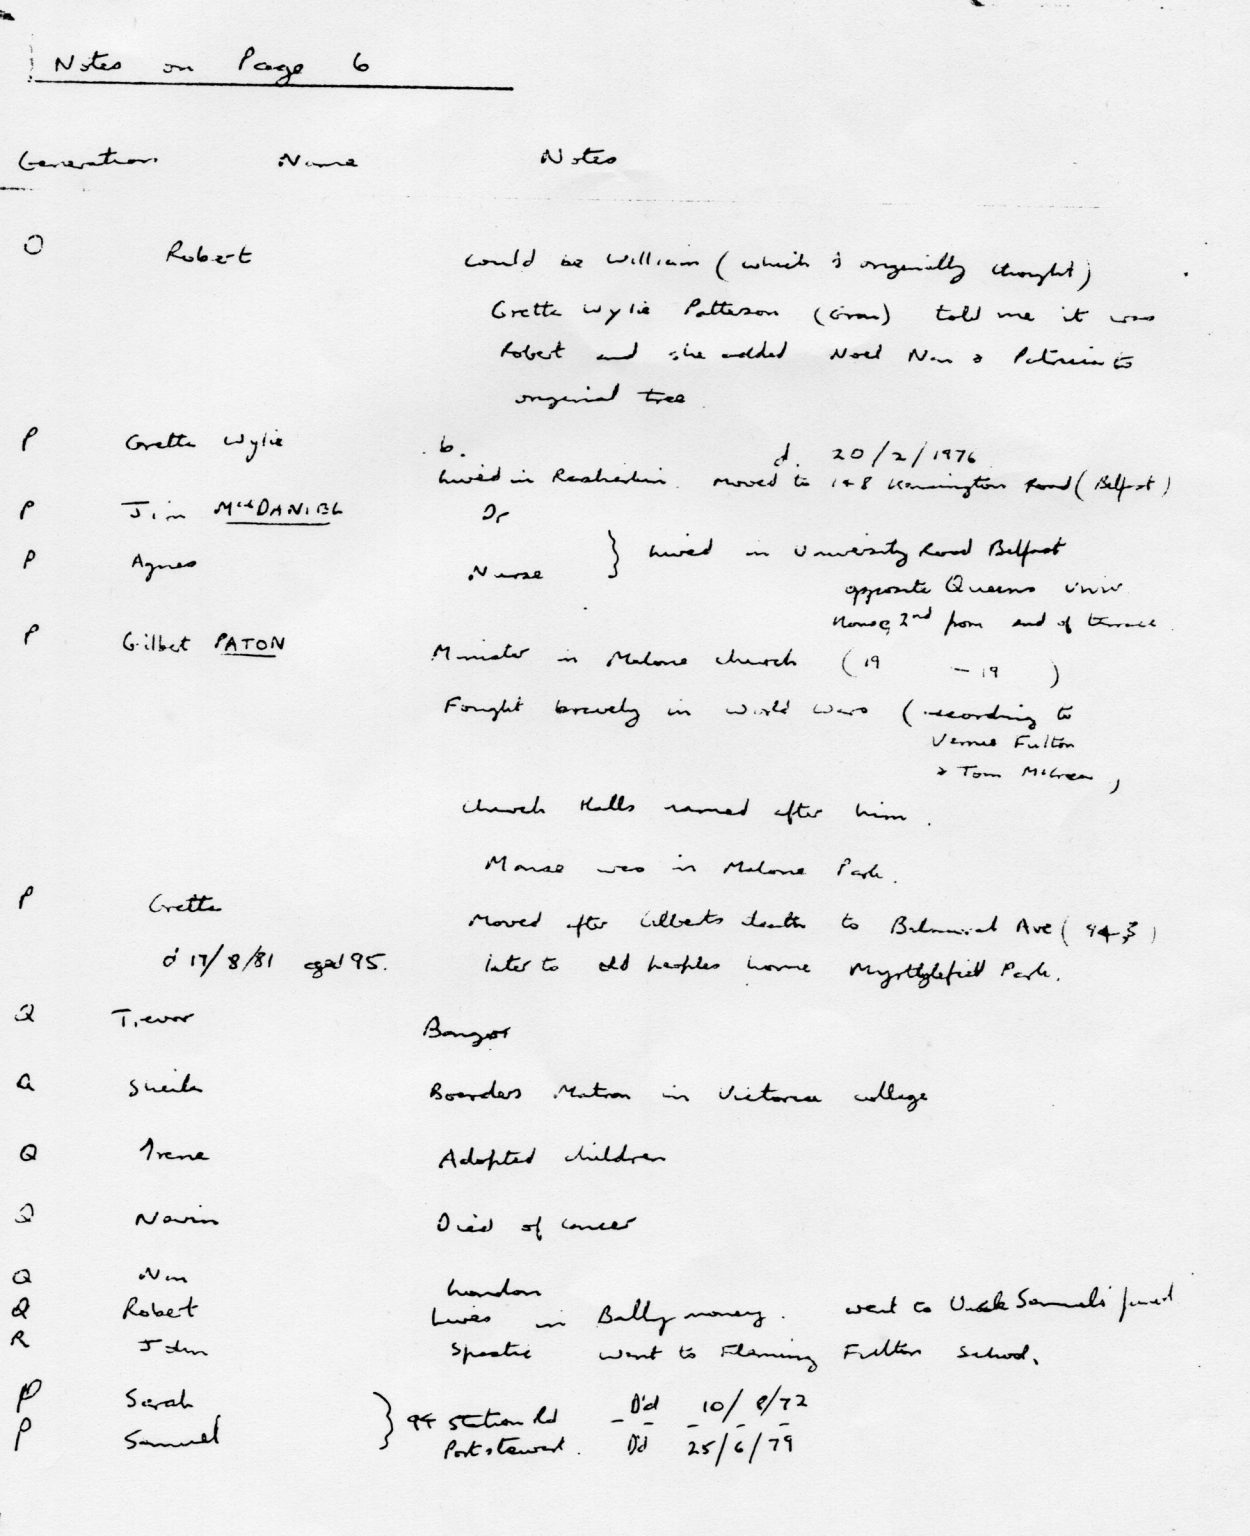 Notes on Page 6
Generation Name Notes
O Robert could be William (which is originally thought)
Gretta Wylie Patterson (Gran) told me it was
Robert and she added Noel Nan & Patricia to
original tree
P Gretta Wylie b. d. 20/2/1976
Lived in Rasharkin. Moved to 148 Kensington Road (Belfast)
P Jim McDANIEL Dr
P Agnes Nurse } Lived in University Road Belfast
opposite Queens Univ
House 2nd from end of terrace
P Gilbert PATON Minister in Malone church (19 - 19 )
Fought bravely in World Wars (according to
Vernie Fulton
& Tom McCrea)
Church Halls named after him.
Manse was in Malone Park.
P Gretta Moved after Gilberts death to Balmoral Ave
d 17/8/81 aged 95. later to old peoples home Myrtlefield Park.
Q Trevor Bangor
Q Sheila Boarders Matron in Victoria college
Q Irene Adopted children
Q Navin Died of cancer
Q Nan London
Q Robert Lives in Ballymoney. went to Uncle Samuels funeral
R John Spastic went to Fleming Fulton School.
P Sarah } 94 Station Rd D'd 10/8/72
P Samuel Portstewart. D'd 25/6/79